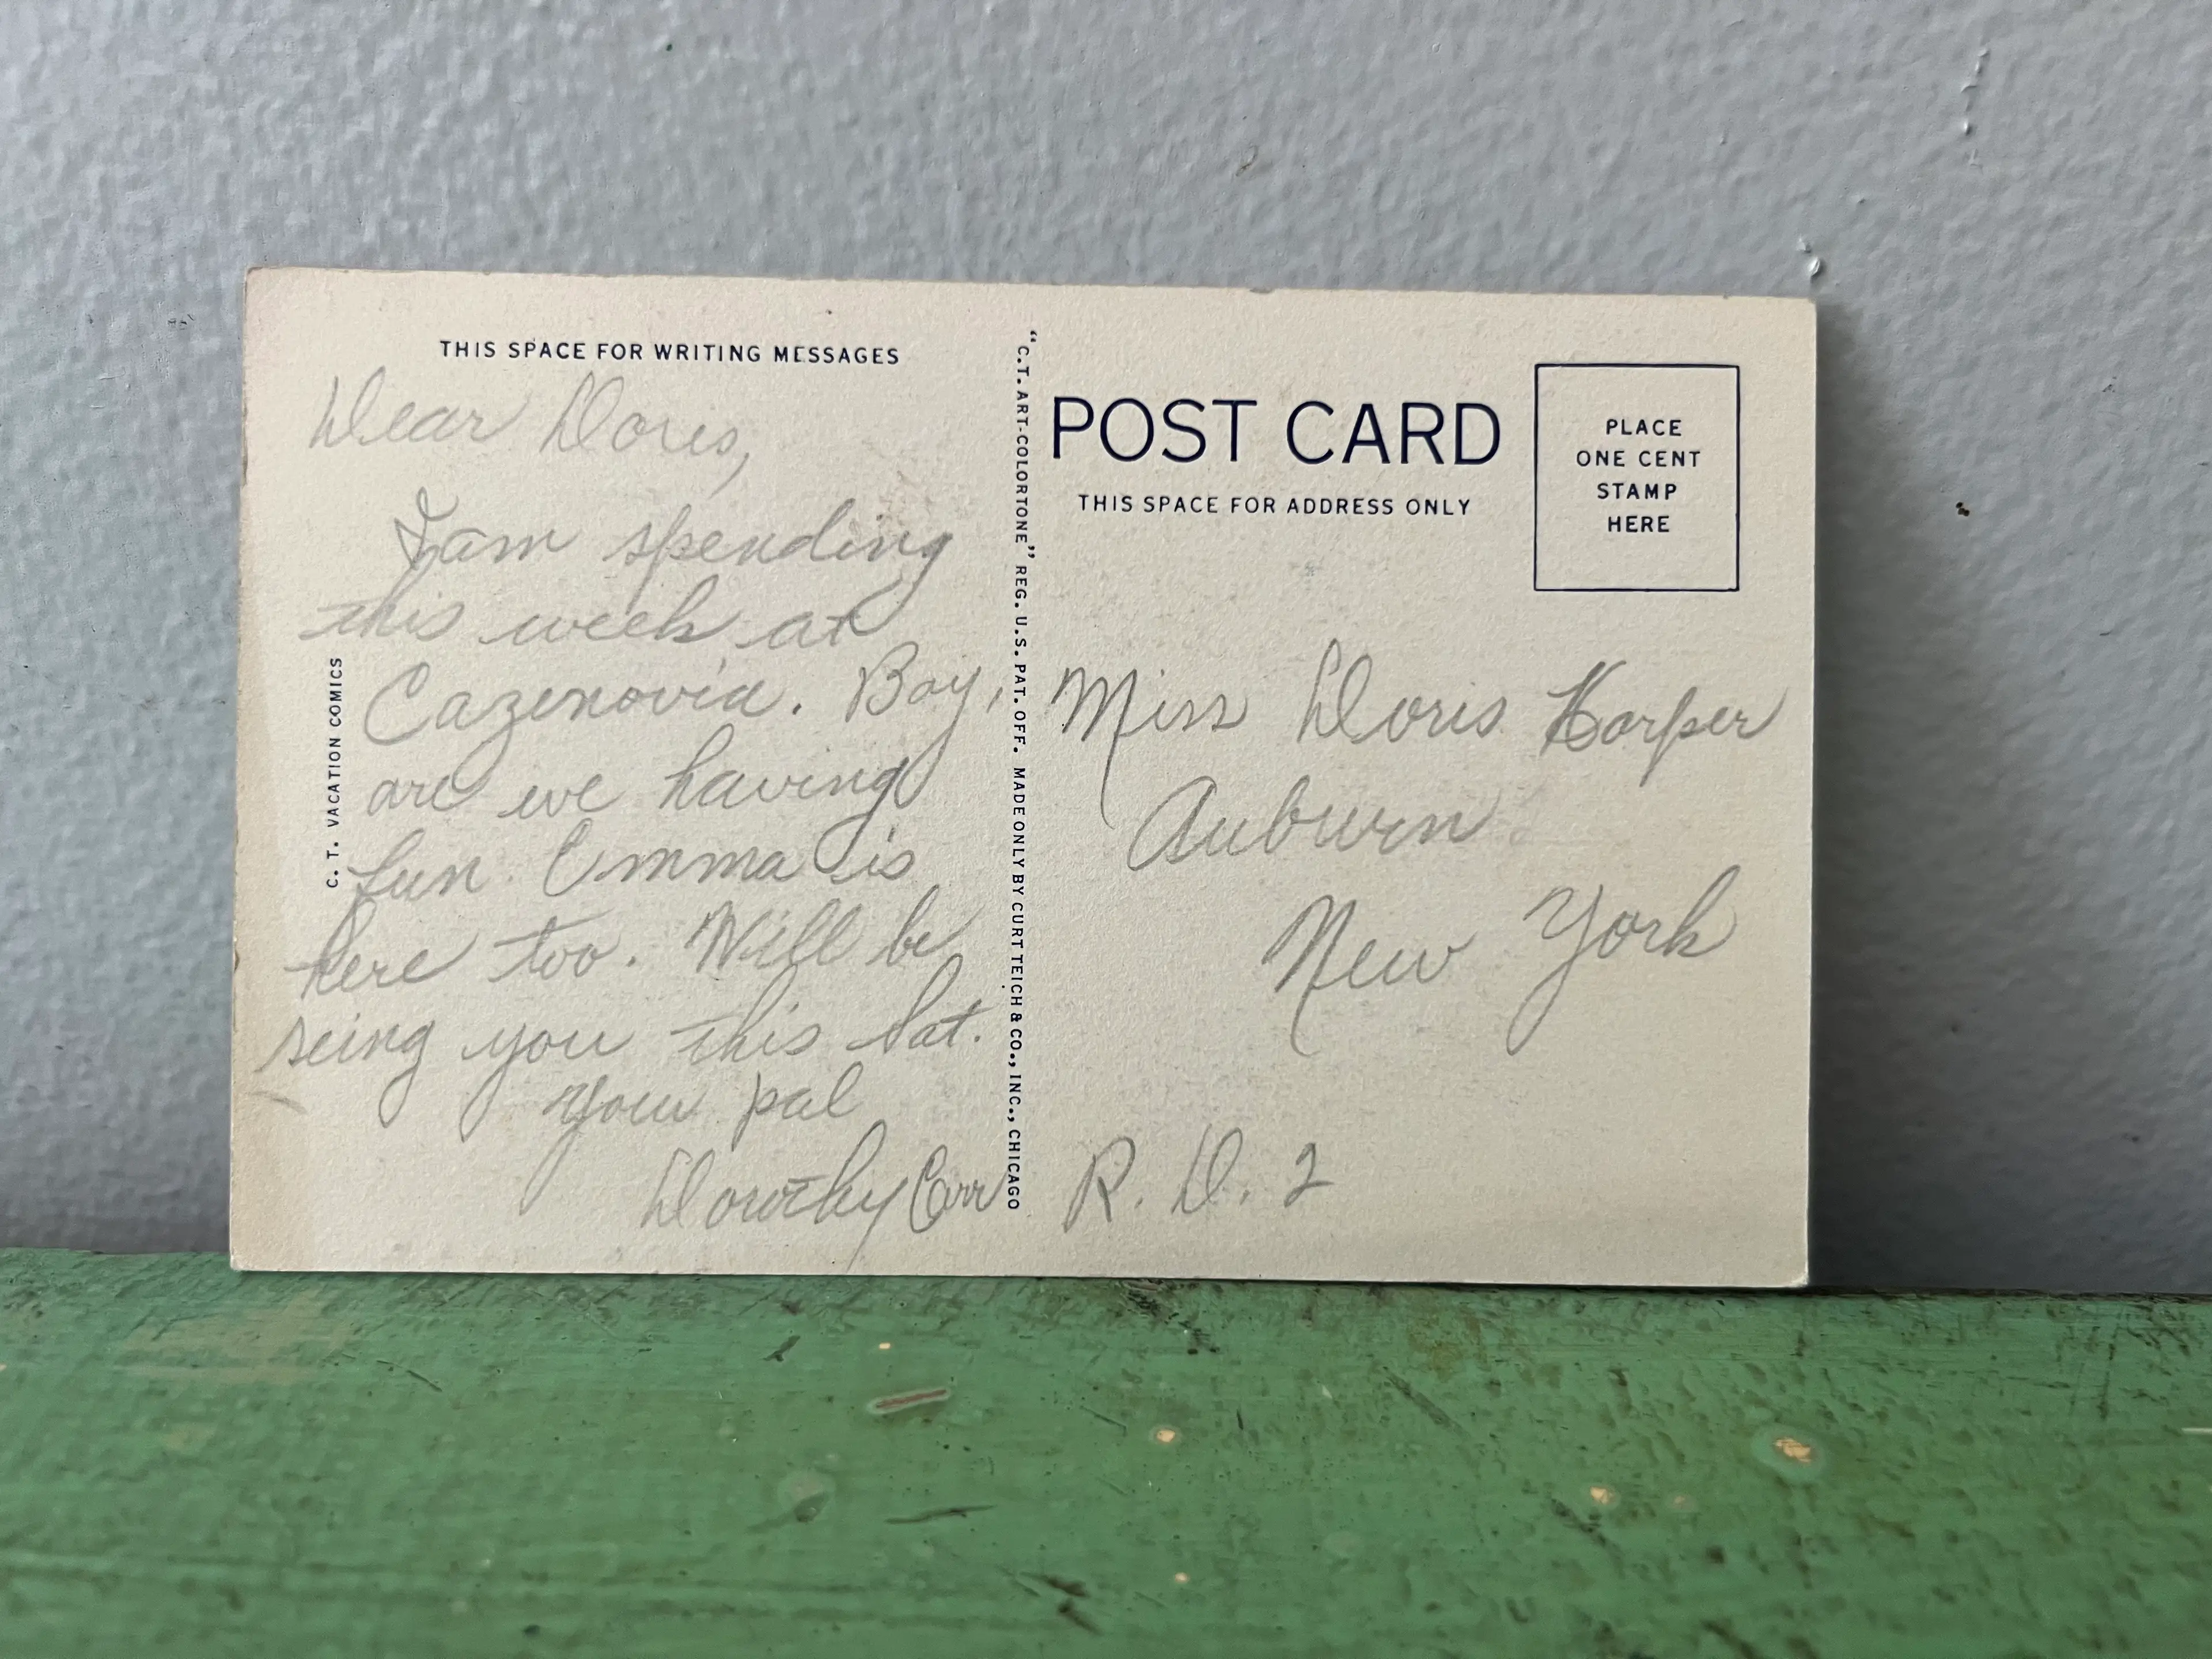 THIS SPACE FOR WRITING MESSAGES
Dear Doris,
I am spending
this week at
Cazenovia. Boy,
are we having
fun. Emma is
here too. Will be
seing you this Sat.
Your pal
Dorothy Carr
C. T. VACATION COMICS
"C.T. ART-COLORTONE" REG. U.S. PAT. OFF. MADE ONLY BY CURT TEICH & CO., INC., CHICAGO
POST CARD
THIS SPACE FOR ADDRESS ONLY
PLACE
ONE CENT
STAMP
HERE
Miss Doris Korper
Auburn
New York
R. D. 2